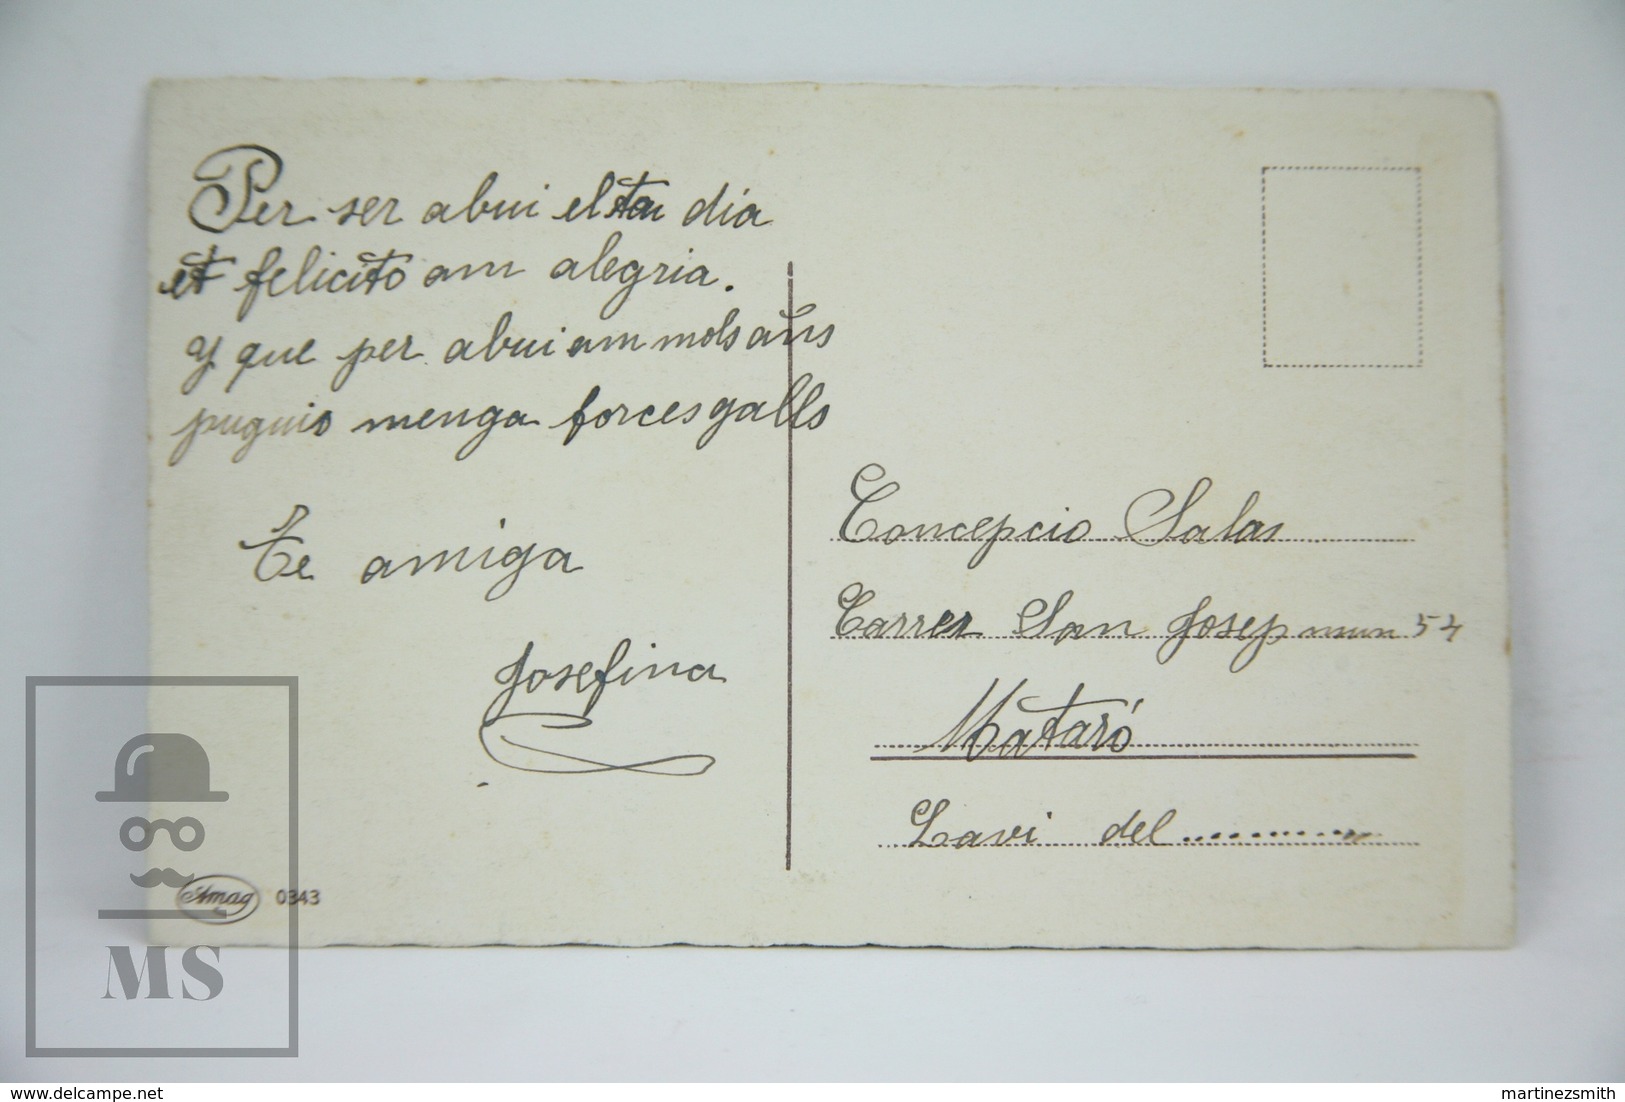 Per ser abui el tau dia
et felicito am alegria.
y que per abui am mols añs
puguis menga forces galls
Te amiga
Josefina
Concepcio Salas
Carrer San Josep mun 54
Mataró
Lavi del
Amag 0343
MS
www.delcampe.net
martinezsmith